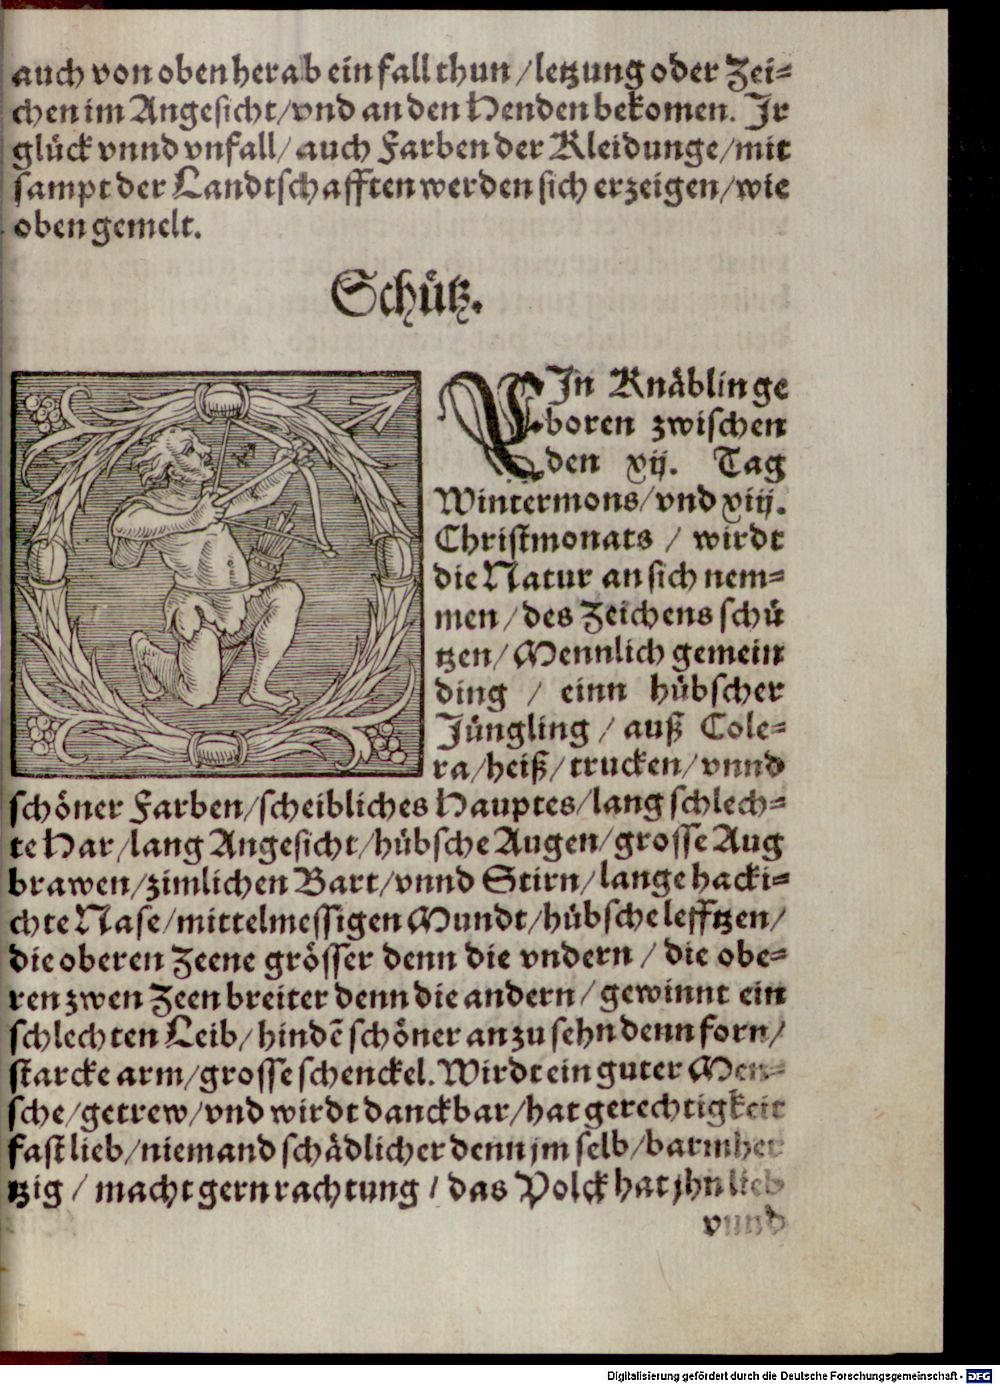 auch von oben herab ein fall thun / letzung oder Zei=
chen im Angesicht / vnd an den Henden bekomen. Ir
glück vnnd vnfall / auch Farben der Kleidunge / mit
sampt der Landtschafften werden sich erzeigen / wie
oben gemelt.
Schütz.
EIn Knäblin ge
boren zwischen
den xij. Tag
Wintermons / vnd xiij.
Christmonats / wirdt
die Natur an sich nem=
men / des Zeichens schü
tzen / Mennlich gemein
ding / einn hübscher
Jüngling / auß Cole=
ra / heiß / trucken / vnnd
schöner Farben / scheibliches Hauptes / lang schlech=
te Har / lang Angesicht / hübsche Augen / grosse Aug
brawen / zimlichen Bart / vnnd Stirn / lange hacki=
chte Nase / mittelmessigen Mundt / hübsche lefftzen /
die oberen Zeene grösser denn die vndern / die obe=
ren zwen Zeen breiter denn die andern / gewinnt ein
schlechten Leib / hindẽ schöner an zu sehn denn forn /
starcke arm / grosse schenckel. Wirdt ein guter Men=
sche / getrew / vnd wirdt danckbar / hat gerechtigkeit
fast lieb / niemand schädlicher denn jm selb / barmher
tzig / macht gern rachtung / das Volck hat jhn lieb
vnnd
Digitalisierung gefördert durch die Deutsche Forschungsgemeinschaft - DFG